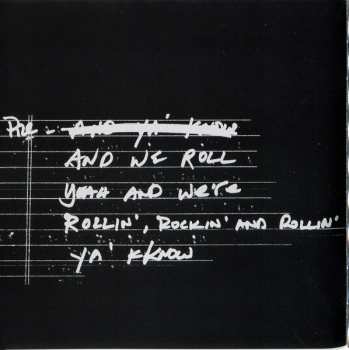 PRE - AND YA' KNOW
AND WE ROLL
YEAH AND WE'RE
ROLLIN', ROCKIN' AND ROLLIN'
YA' KKNOW